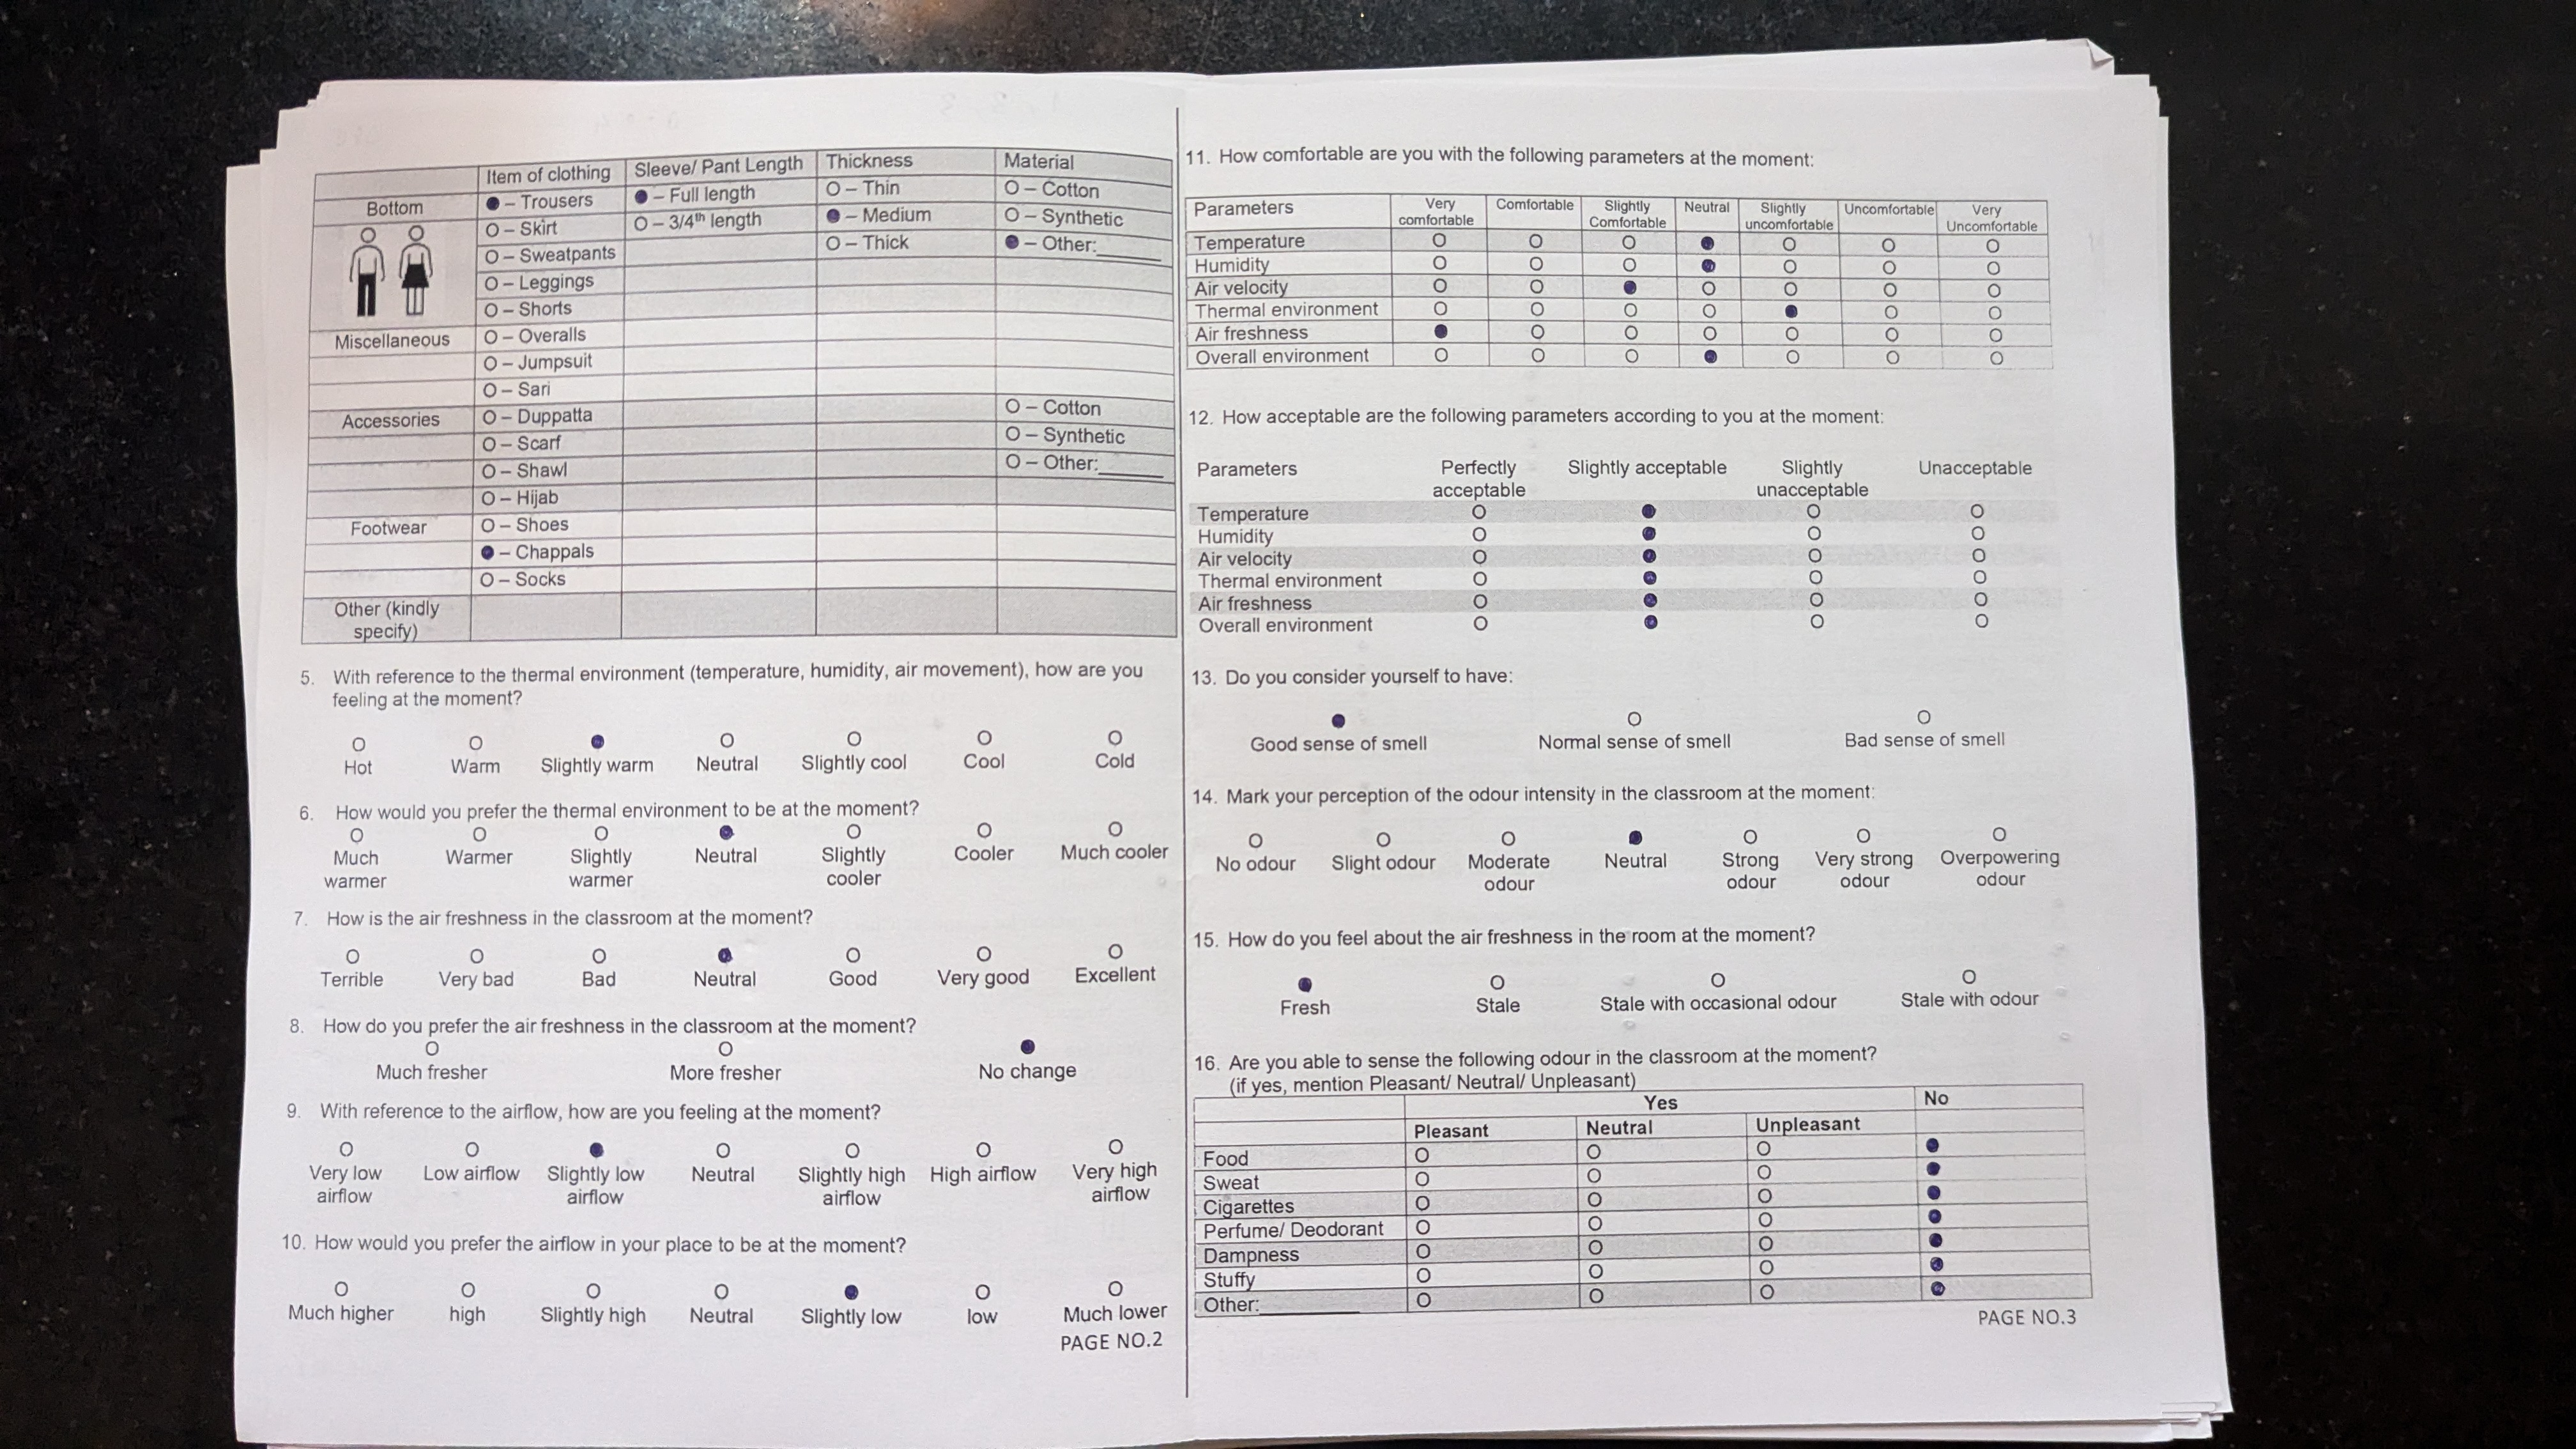 Item of clothing Sleeve/ Pant Length Thickness Material
Bottom ● – Trousers ● – Full length O – Thin O – Cotton
O – Skirt O – 3/4th length ● – Medium O – Synthetic
O – Sweatpants O – Thick ● – Other:______
O – Leggings
O – Shorts
Miscellaneous O – Overalls
O – Jumpsuit
O – Sari
Accessories O – Duppatta O – Cotton
O – Scarf O – Synthetic
O – Shawl O – Other:______
O – Hijab
Footwear O – Shoes
● – Chappals
O – Socks
Other (kindly
specify)
5. With reference to the thermal environment (temperature, humidity, air movement), how are you
feeling at the moment?
O O ● O O O O
Hot Warm Slightly warm Neutral Slightly cool Cool Cold
6. How would you prefer the thermal environment to be at the moment?
O O O ● O O O
Much Warmer Slightly Neutral Slightly Cooler Much cooler
warmer warmer cooler
7. How is the air freshness in the classroom at the moment?
O O O ● O O O
Terrible Very bad Bad Neutral Good Very good Excellent
8. How do you prefer the air freshness in the classroom at the moment?
O O ●
Much fresher More fresher No change
9. With reference to the airflow, how are you feeling at the moment?
O O ● O O O O
Very low Low airflow Slightly low Neutral Slightly high High airflow Very high
airflow airflow airflow airflow
10. How would you prefer the airflow in your place to be at the moment?
O O O O ● O O
Much higher high Slightly high Neutral Slightly low low Much lower
PAGE NO.2
11. How comfortable are you with the following parameters at the moment:
Parameters Very Comfortable Slightly Neutral Slightly Uncomfortable Very
comfortable Comfortable uncomfortable Uncomfortable
Temperature O O O ● O O O
Humidity O O O ● O O O
Air velocity O O ● O O O O
Thermal environment O O O O ● O O
Air freshness ● O O O O O O
Overall environment O O O ● O O O
12. How acceptable are the following parameters according to you at the moment:
Parameters Perfectly Slightly acceptable Slightly Unacceptable
acceptable unacceptable
Temperature O ● O O
Humidity O ● O O
Air velocity O ● O O
Thermal environment O ● O O
Air freshness O ● O O
Overall environment O ● O O
13. Do you consider yourself to have:
● O O
Good sense of smell Normal sense of smell Bad sense of smell
14. Mark your perception of the odour intensity in the classroom at the moment:
O O O ● O O O
No odour Slight odour Moderate Neutral Strong Very strong Overpowering
odour odour odour odour
15. How do you feel about the air freshness in the room at the moment?
● O O O
Fresh Stale Stale with occasional odour Stale with odour
16. Are you able to sense the following odour in the classroom at the moment?
(if yes, mention Pleasant/ Neutral/ Unpleasant)
Yes No
Pleasant Neutral Unpleasant
Food O O O ●
Sweat O O O ●
Cigarettes O O O ●
Perfume/ Deodorant O O O ●
Dampness O O O ●
Stuffy O O O ●
Other:__________ O O O ●
PAGE NO.3